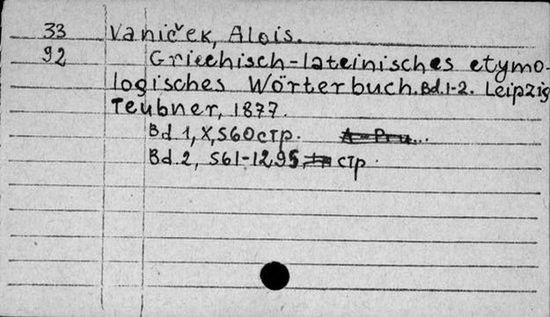 33 Vaniček, Alois.
92 Griechisch-lateinisches etymo-
logisches Wörterbuch. Bd. 1-2. Leipzig
Teubner, 1877.
Bd 1, X, 560 стр.
Bd. 2, 561-1295, стр.